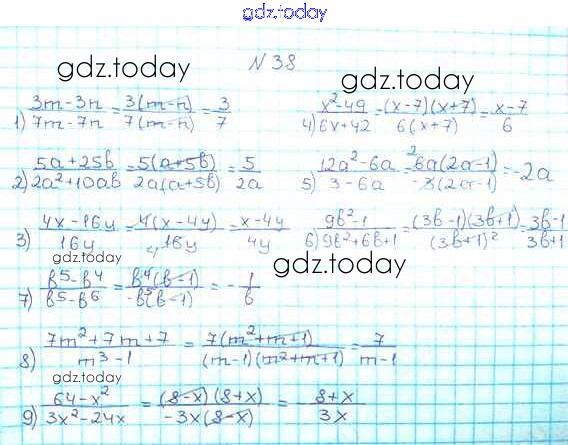 gdz.today
N 38
gdz.today
gdz.today
1) (3m-3n)/(7m-7n) = 3(m-n)/7(m-n) = 3/7
4) (x²-49)/(6x+42) = (x-7)(x+7)/6(x+7) = (x-7)/6
2) (5a+25b)/(2a²+10ab) = 5(a+5b)/2a(a+5b) = 5/2a
5) (12a²-6a)/(3-6a) = ²6a(2a-1)/-3(2a-1) = -2a
3) (4x-16y)/16y = 4(x-4y)/₄16y = (x-4y)/4y
6) (9b²-1)/(9b²+6b+1) = (3b-1)(3b+1)/(3b+1)² = (3b-1)/(3b+1)
gdz.today
7) (b⁵-b⁴)/(b⁵-b⁶) = b⁴(b-1)/-b⁵(b-1) = -1/b
8) (7m²+7m+7)/(m³-1) = 7(m²+m+1)/(m-1)(m²+m+1) = 7/(m-1)
gdz.today
9) (64-x²)/(3x²-24x) = (8-x)(8+x)/-3x(8-x) = -(8+x)/3x